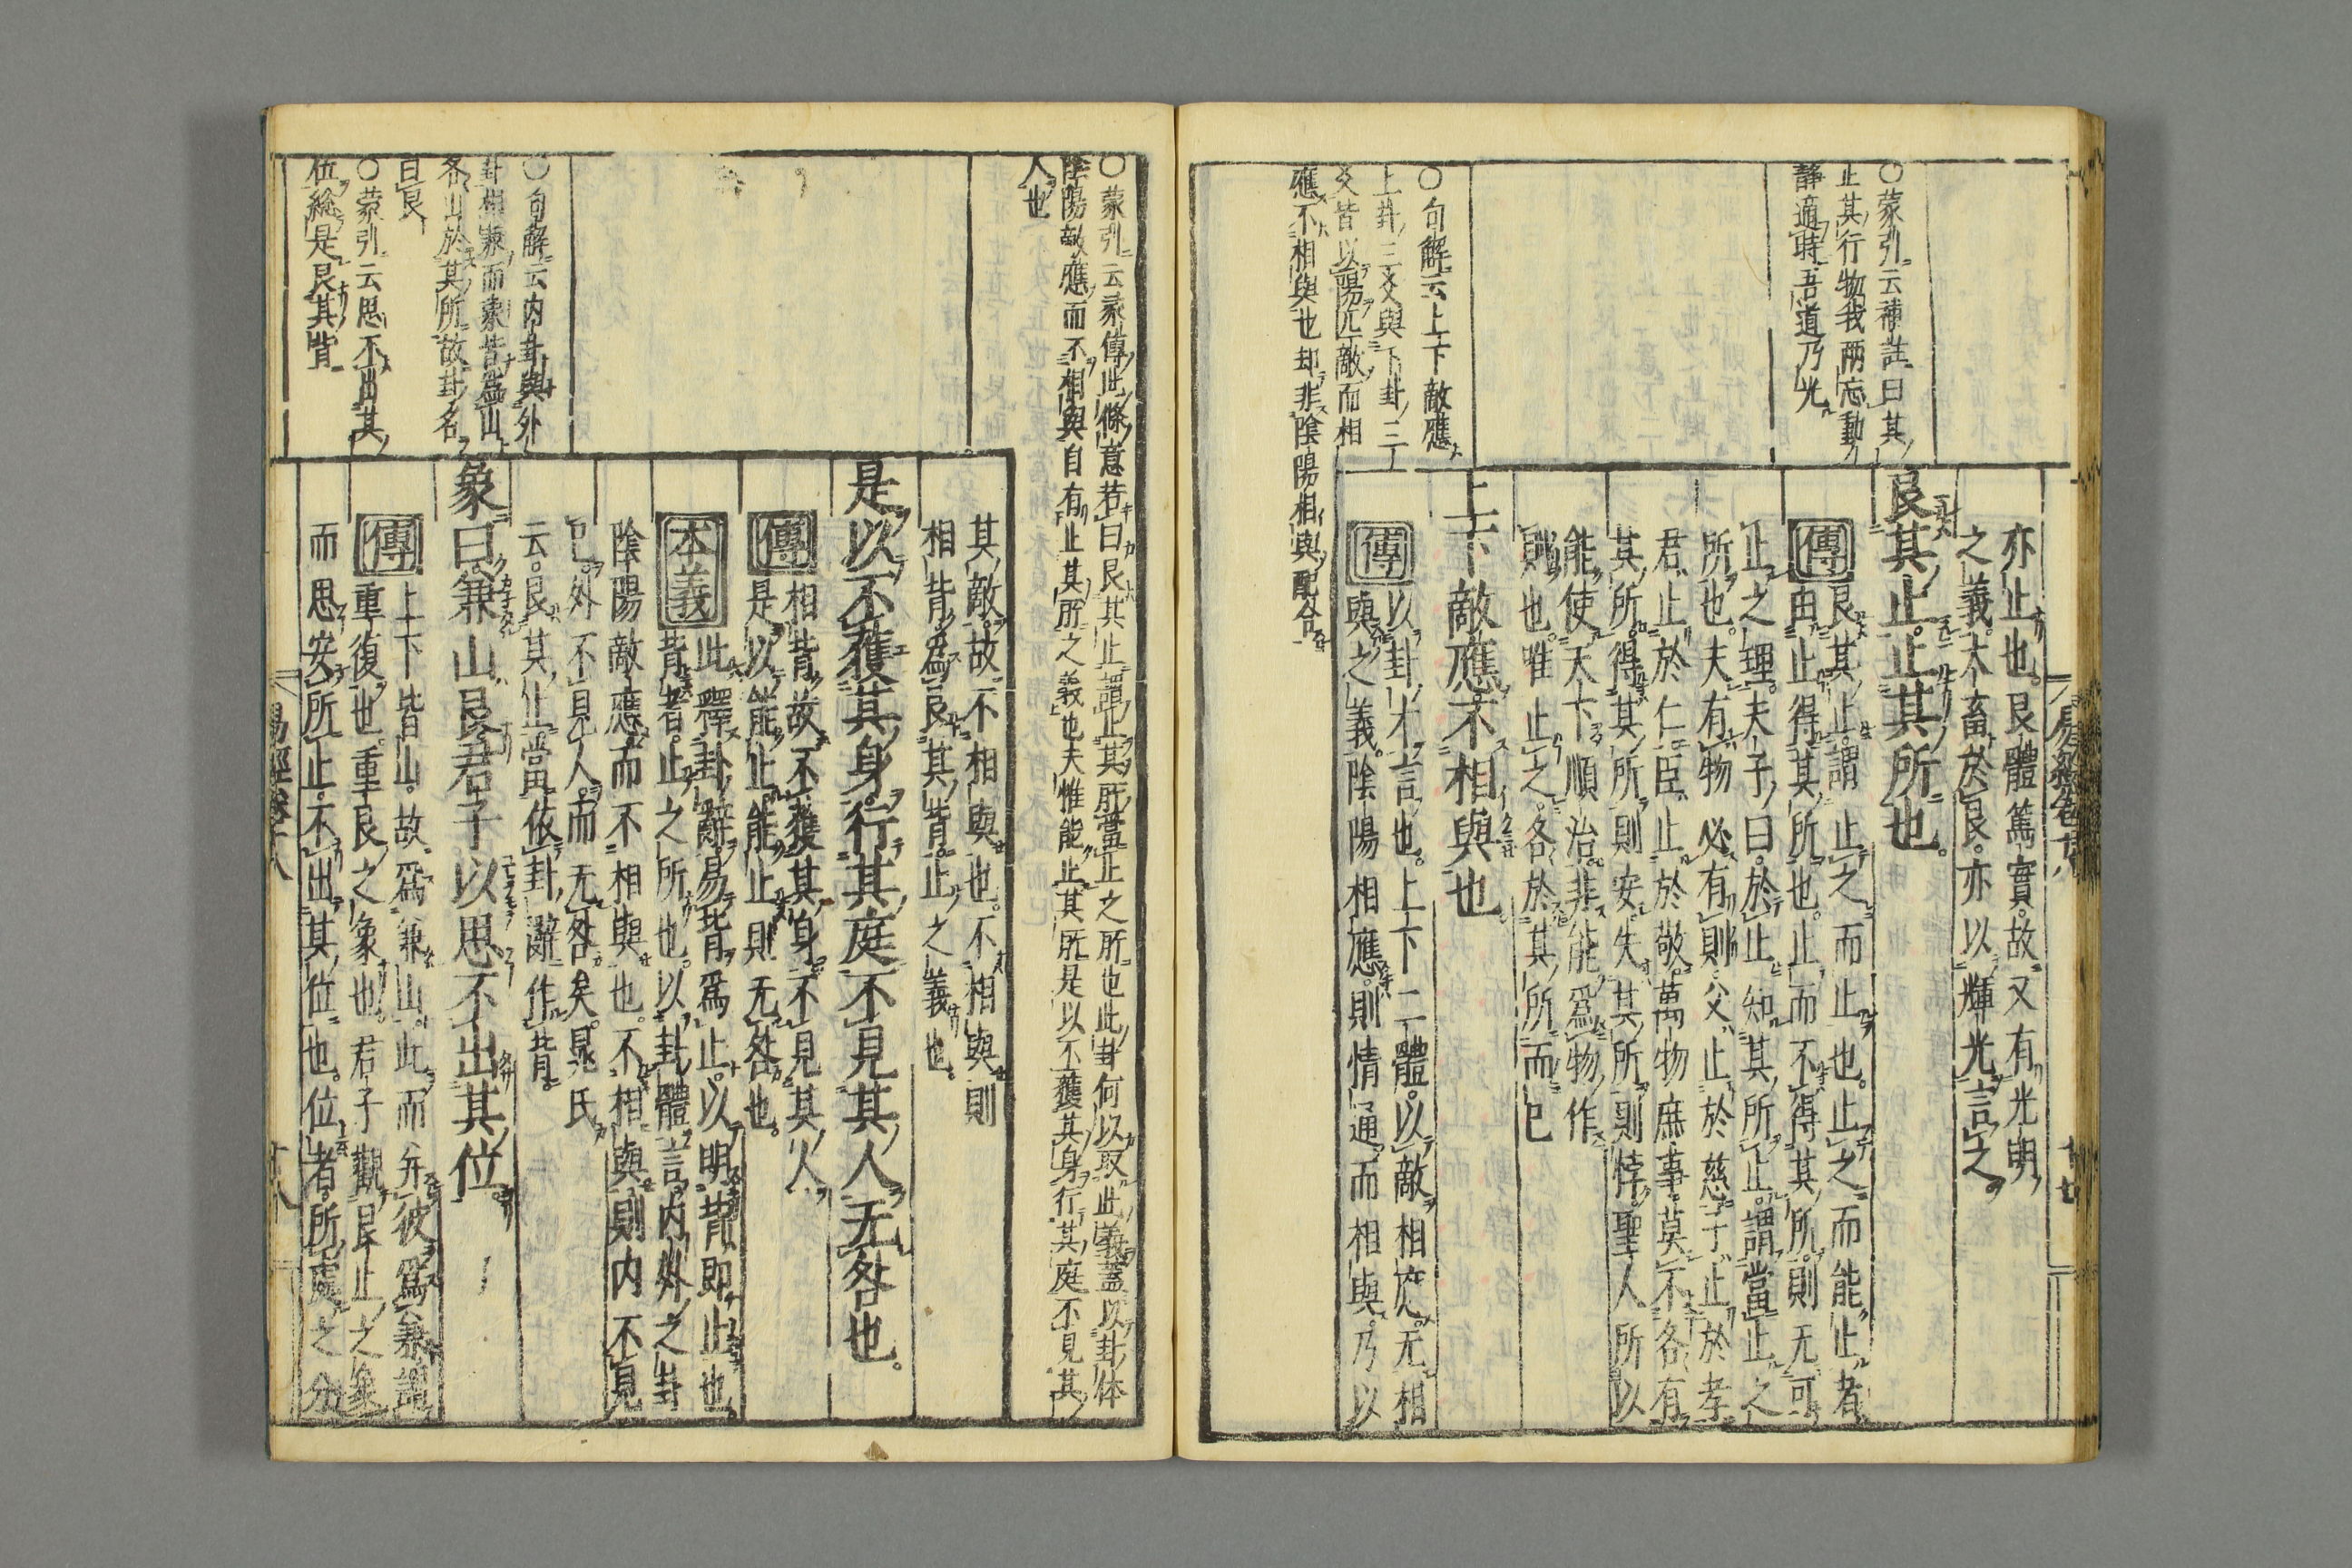 易經卷十八
十七
亦止也。艮體篤實。故又有光明
之義。大畜於艮。亦以輝光言之。
艮其止。止其所也。
傳
艮其止。謂止之而止也。止之而能止者。
由止得其所也。止而不得其所。則无可
止之理。夫子曰。於止。知其所止。謂當止之
所也。夫有物必有則。父止於慈。子止於孝。
君止於仁。臣止於敬。萬物庶事。莫不各有
其所。得其所則安。失其所則悖。聖人所以
能使天下順治。非能爲物作
則也。唯止之各於其所而已
上下敵應。不相與也。
傳
以卦才言也。上下二體。以敵相應。无相
與之義。陰陽相應。則情通而相與。乃以
○蒙引云補註曰其
止其行物我兩忘動
靜適時吾道乃光
○句解云上下敵應
上卦三爻與下卦三
爻皆以陽匹敵而相
應不相與也却非陰陽相與配合
○蒙引云彖傳此條意若曰艮其止謂止其所當止之所也此卦何以取此義蓋以卦体
陰陽敵應而不相與自有止其所之義也夫惟能止其所是以不獲其身行其庭不見其
人也
其敵。故不相與也。不相與則
相背。爲艮其背。止之義也。
是以不獲其身。行其庭。不見其人。无咎也。
傳
相背。故不獲其身。不見其人。
是以能止。能止則无咎也。
本義
此釋卦辭。易背爲止。以明背即止也。
背者。止之所也。以卦體言。内外之卦
陰陽敵應而不相與也。不相與。則内不見
已。外不見人。而无咎矣。晁氏
云。艮其止。當依卦辭作背。
象曰。兼山艮。君子以思不出其位。
傳
上下皆山。故爲兼山。此而并彼爲兼。謂
重復也。重艮之象也。君子觀艮止之象
而思安所止。不出其位也。位者。所處之分
○句解云内卦與外
卦相兼而象皆爲山
各山於其所故卦名
曰艮
○蒙引云思不出其
位總是艮其背
易經卷十八
十八